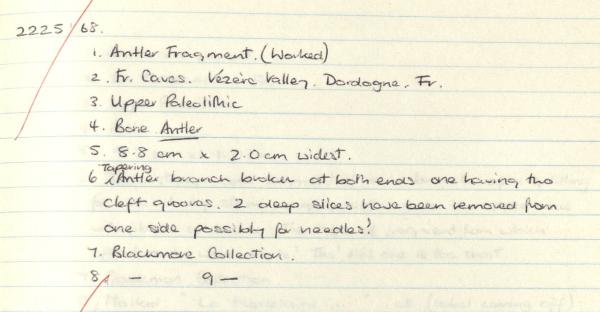 2225/68.
1. Antler Fragment. (Worked)
2. Fr. Caves. Vézère Valley. Dordogne, Fr.
3. Upper Paleolithic
4. Bone Antler
5. 8.8 cm x 2.0 cm widest.
6 Tapering Antler branch broken at both ends one having two
cleft grooves. 2 deep slices have been removed from
one side possibly for needles?
7. Blackmore Collection.
8. — 9 —